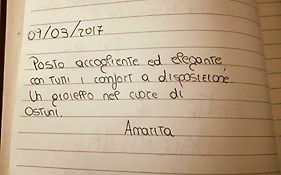 09/03/2017
Posto accogliente ed elegante,
con tutti i comfort a disposizione.
Un gioiello nel cuore di
Ostuni.
Amarita